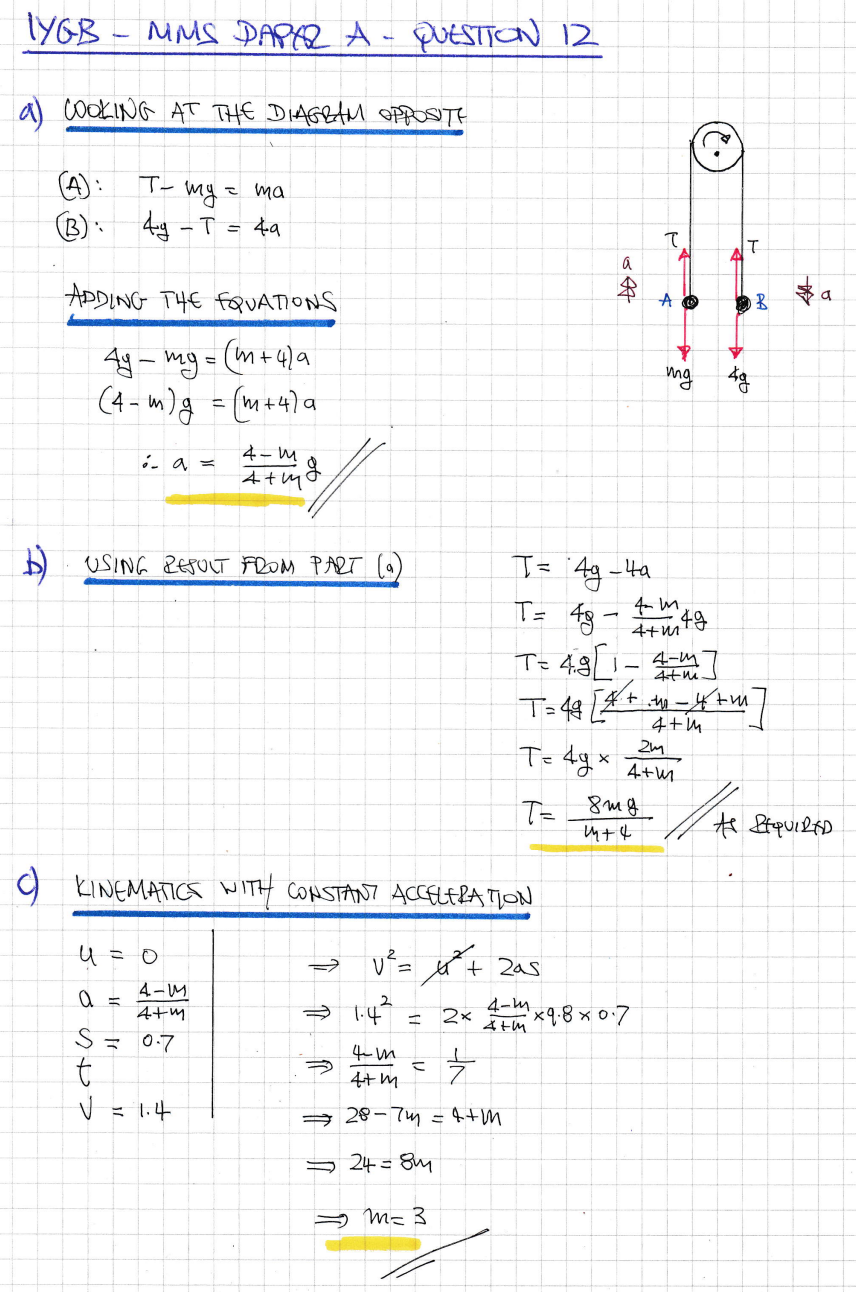 IYGB - MMS PAPER A - QUESTION 12
a) LOOKING AT THE DIAGRAM OPPOSITE
(A): T - mg = ma
(B): 4g - T = 4a
ADDING THE EQUATIONS
4g - mg = (m+4)a
(4-m)g = (m+4)a
∴ a = \frac{4-m}{4+m} g
T
T
a
A
B
a
mg
4g
b) USING RESULT FROM PART (a)
T = 4g - 4a
T = 4g - \frac{4-m}{4+m} 4g
T = 4g [1 - \frac{4-m}{4+m}]
T = 4g [\frac{4+m-4+m}{4+m}]
T = 4g × \frac{2m}{4+m}
T = \frac{8mg}{m+4}
AS REQUIRED
c) KINEMATICS WITH CONSTANT ACCELERATION
u = 0
a = \frac{4-m}{4+m}
s = 0.7
t
v = 1.4
⇒ v² = u² + 2as
⇒ 1.4² = 2 × \frac{4-m}{4+m} × 9.8 × 0.7
⇒ \frac{4-m}{4+m} = \frac{1}{7}
⇒ 28 - 7m = 4 + m
⇒ 24 = 8m
⇒ m = 3